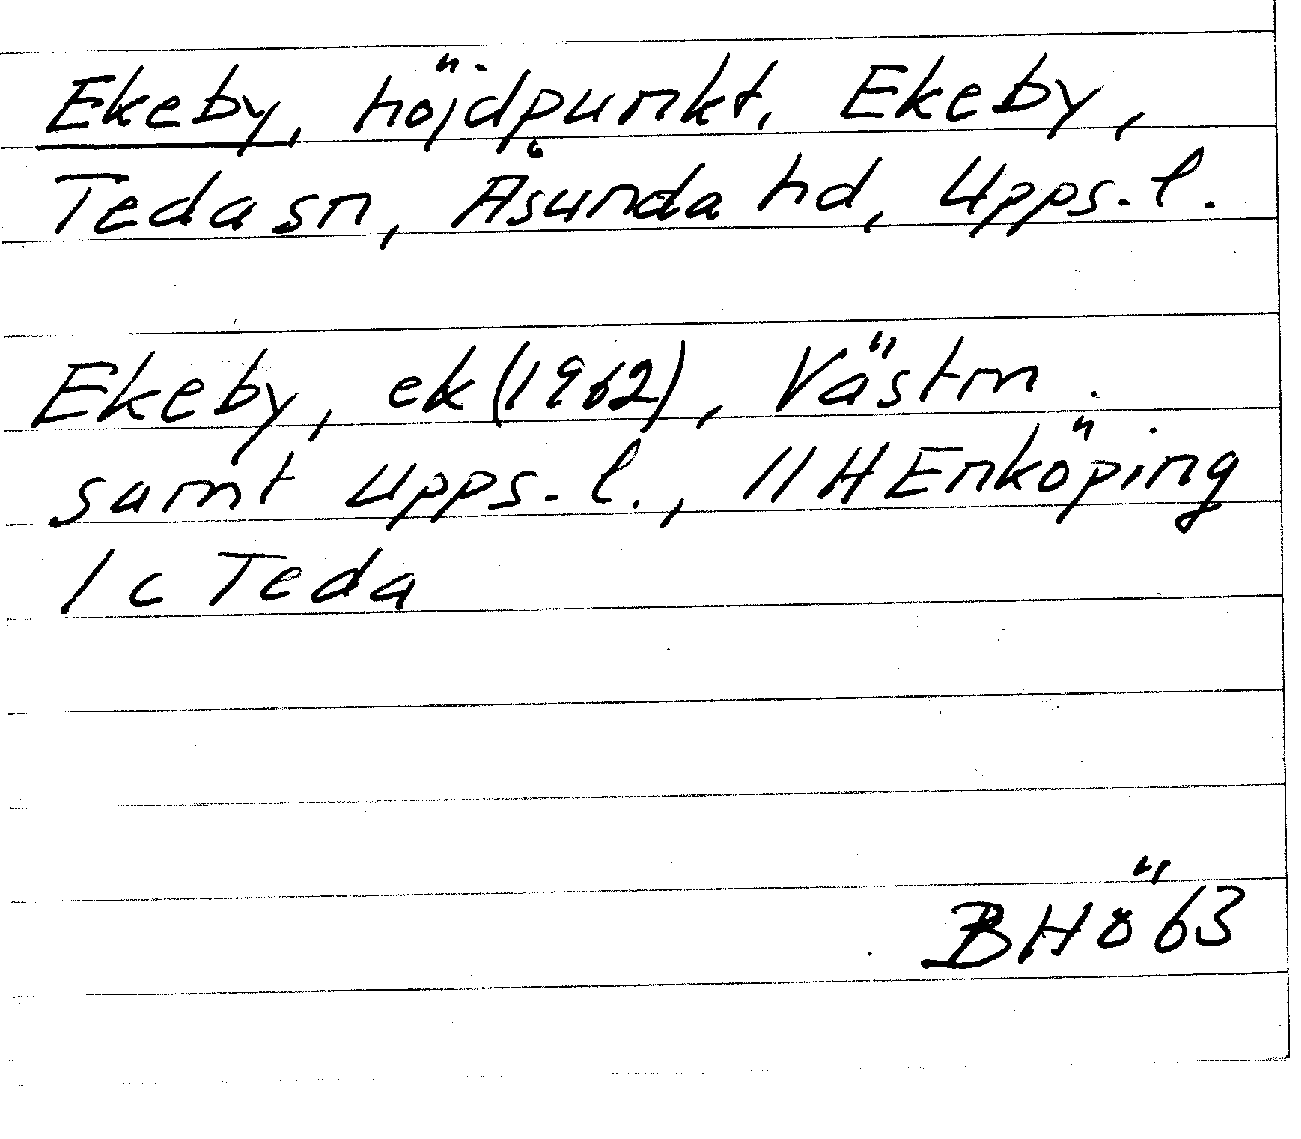 Ekeby, höjdpunkt, Ekeby,
Teda sn, Åsunda hd, Upps. l.
Ekeby, ek (1962), Västm.
samt Upps. l., 11 H Enköping
1 c Teda
BHö 63